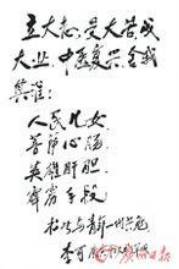 立大志，受大苦，成
大业，中医复兴，舍我
其谁！
人民儿女
菩萨心肠
英雄肝胆
霹雳手段
李可
广州日报